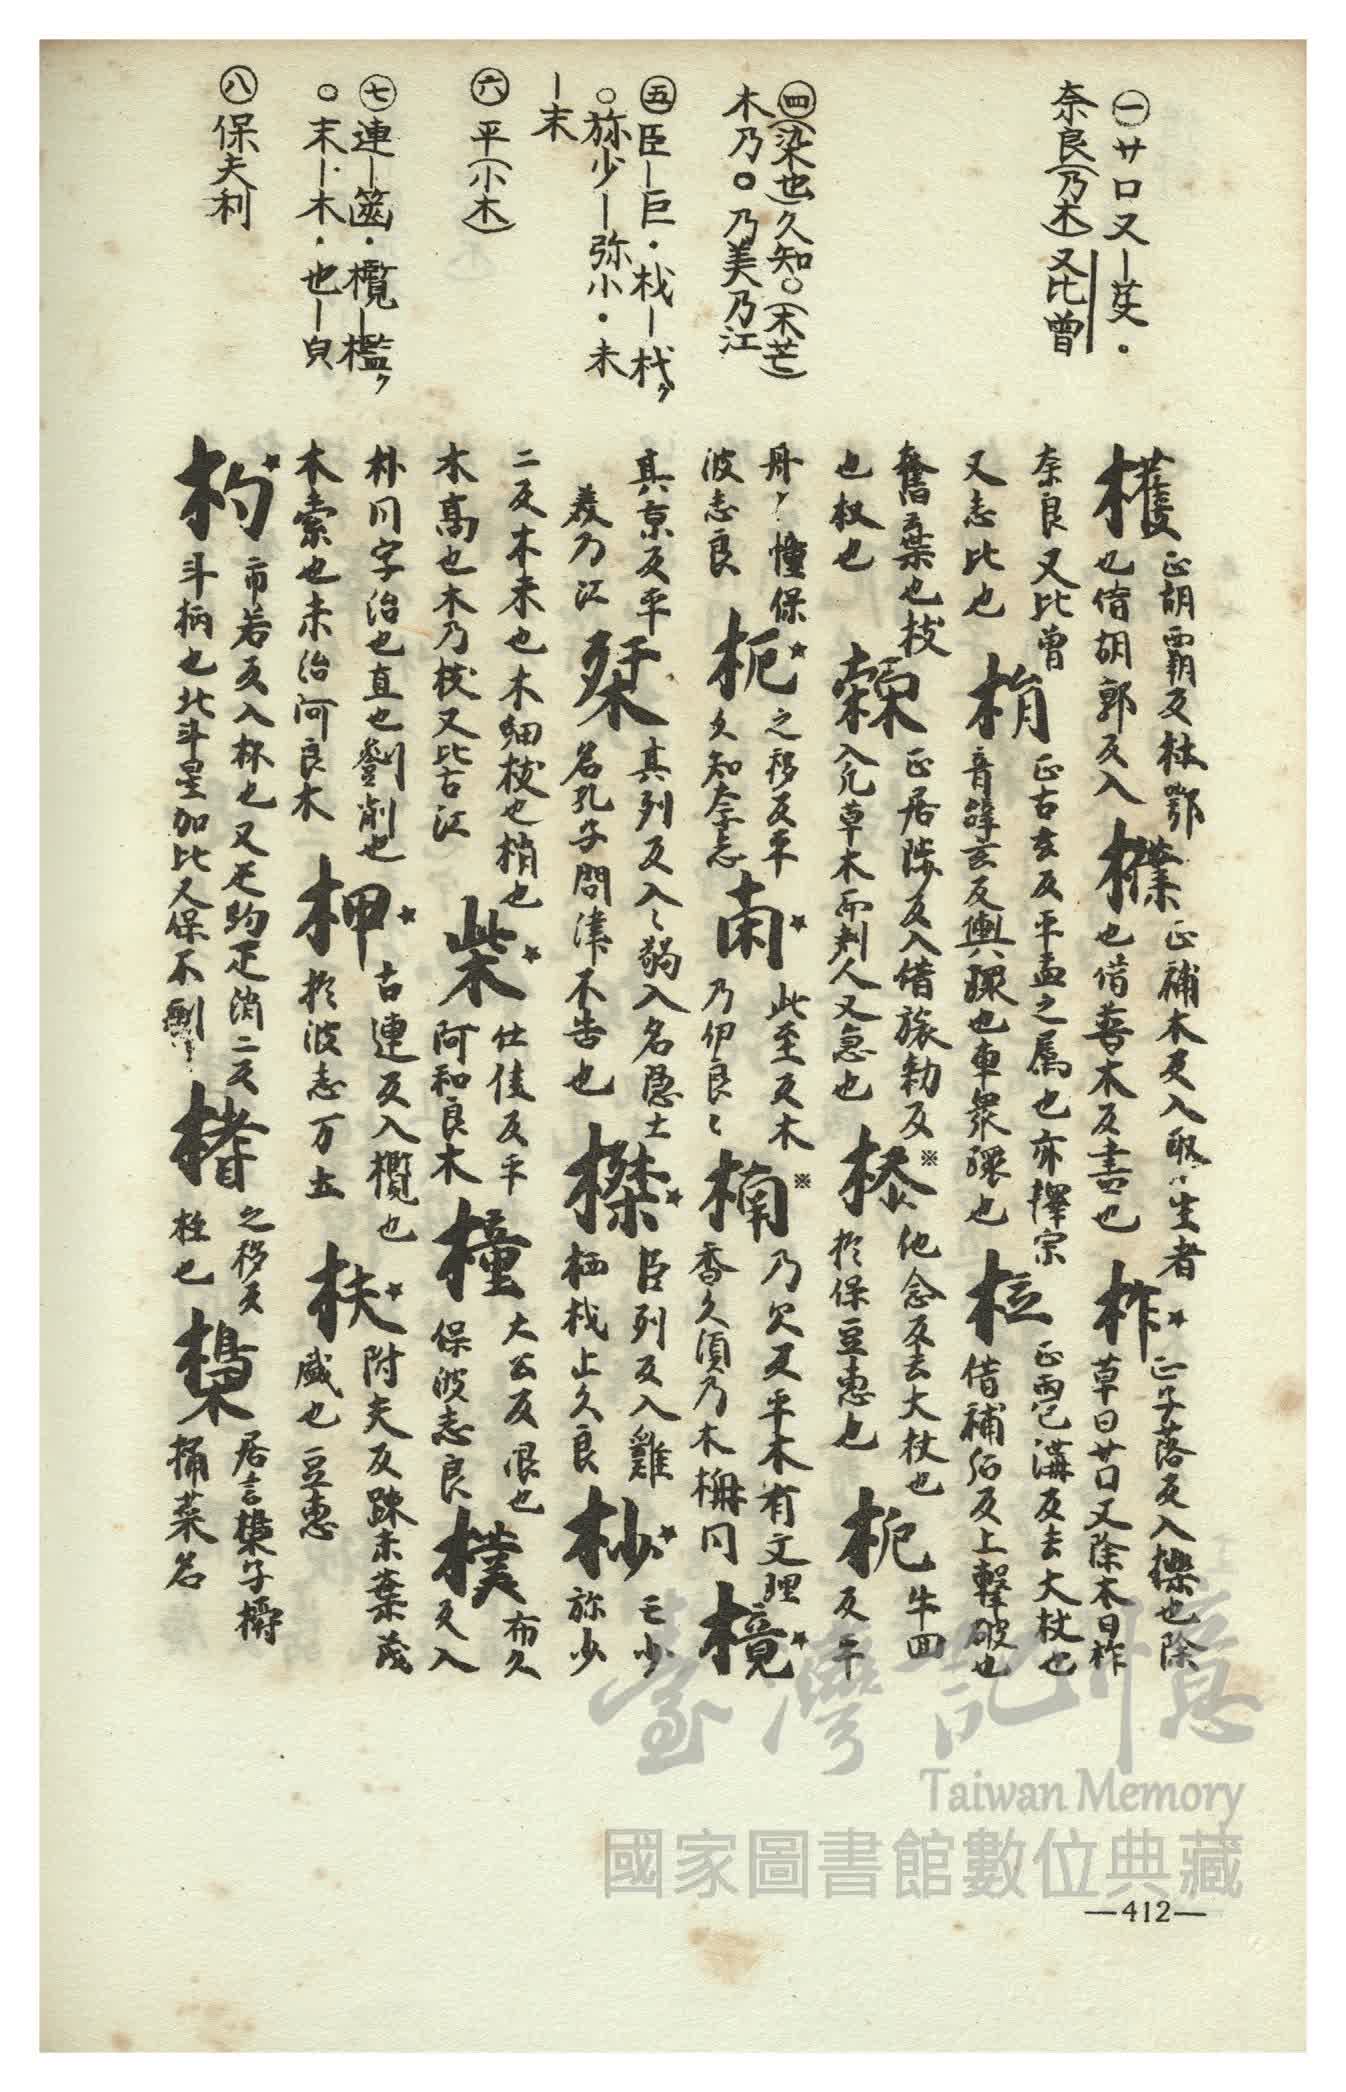 ㊀廿口又ー芆・
奈良(乃木)又比曾
㊃(染也)久知○(木芒)
木乃○乃美乃江
㊄臣ー巨・栈ー杙ク
○旀少ー弥小・未
ー末
㊅平(小木)
㊆連ー篋・欖ー檻ク
○末ー木・也ー皃
㊇保夫利
檴 正胡霸反杜鄂
也借胡郭反入
檏 正補木反入取生者
也借普木反盡也
柞 正子落反入櫟也除
草曰廿口又除木曰柞
奈良又比曾
又志比也
梋 正古玄反平盂之属也亦擇宗
音辞玄反輿環也車衆環也
柆 正雨包溝反去大杖也
借補后反上擊破也
奮棄也枝
也权也
檺 正居陟反入借旅勅反
入凡草木而刺人又急也
桼 他念反去大杖也
於保豆恵也
枙 牛回
反平
丹 橦保
波志良
枙 之移反平
久知奈志
南 此至反木
乃伊良ゝ
楠 乃欠反平木有文理
香久須乃木柟同
樈
其京反平
美乃江
栔 其列反入ゝ鷄入名隠士
名孔子問津不告也
榤 臣列反入雞
栖栈止久良
杪 亡少
旀少
二反木末也木細枝也梢也
木高也木乃枝又比古江
柴 仕佳反平
阿和良木
橦 大公反帳也
保波志良
樸 布久
反入
朴同字治也直也劉削也
木素也未治阿良木
柙 古連反入欖也
於波志万
扶 附夫反疎未葉茂
盛也豆恵
杓 市若反入杯也又疋約疋消二反
斗柄也北斗星加比又保不利
楮 之移反
柱也
樢 居言樢子檇
桶菜名
—412—
臺灣記憶
Taiwan Memory
國家圖書館數位典藏